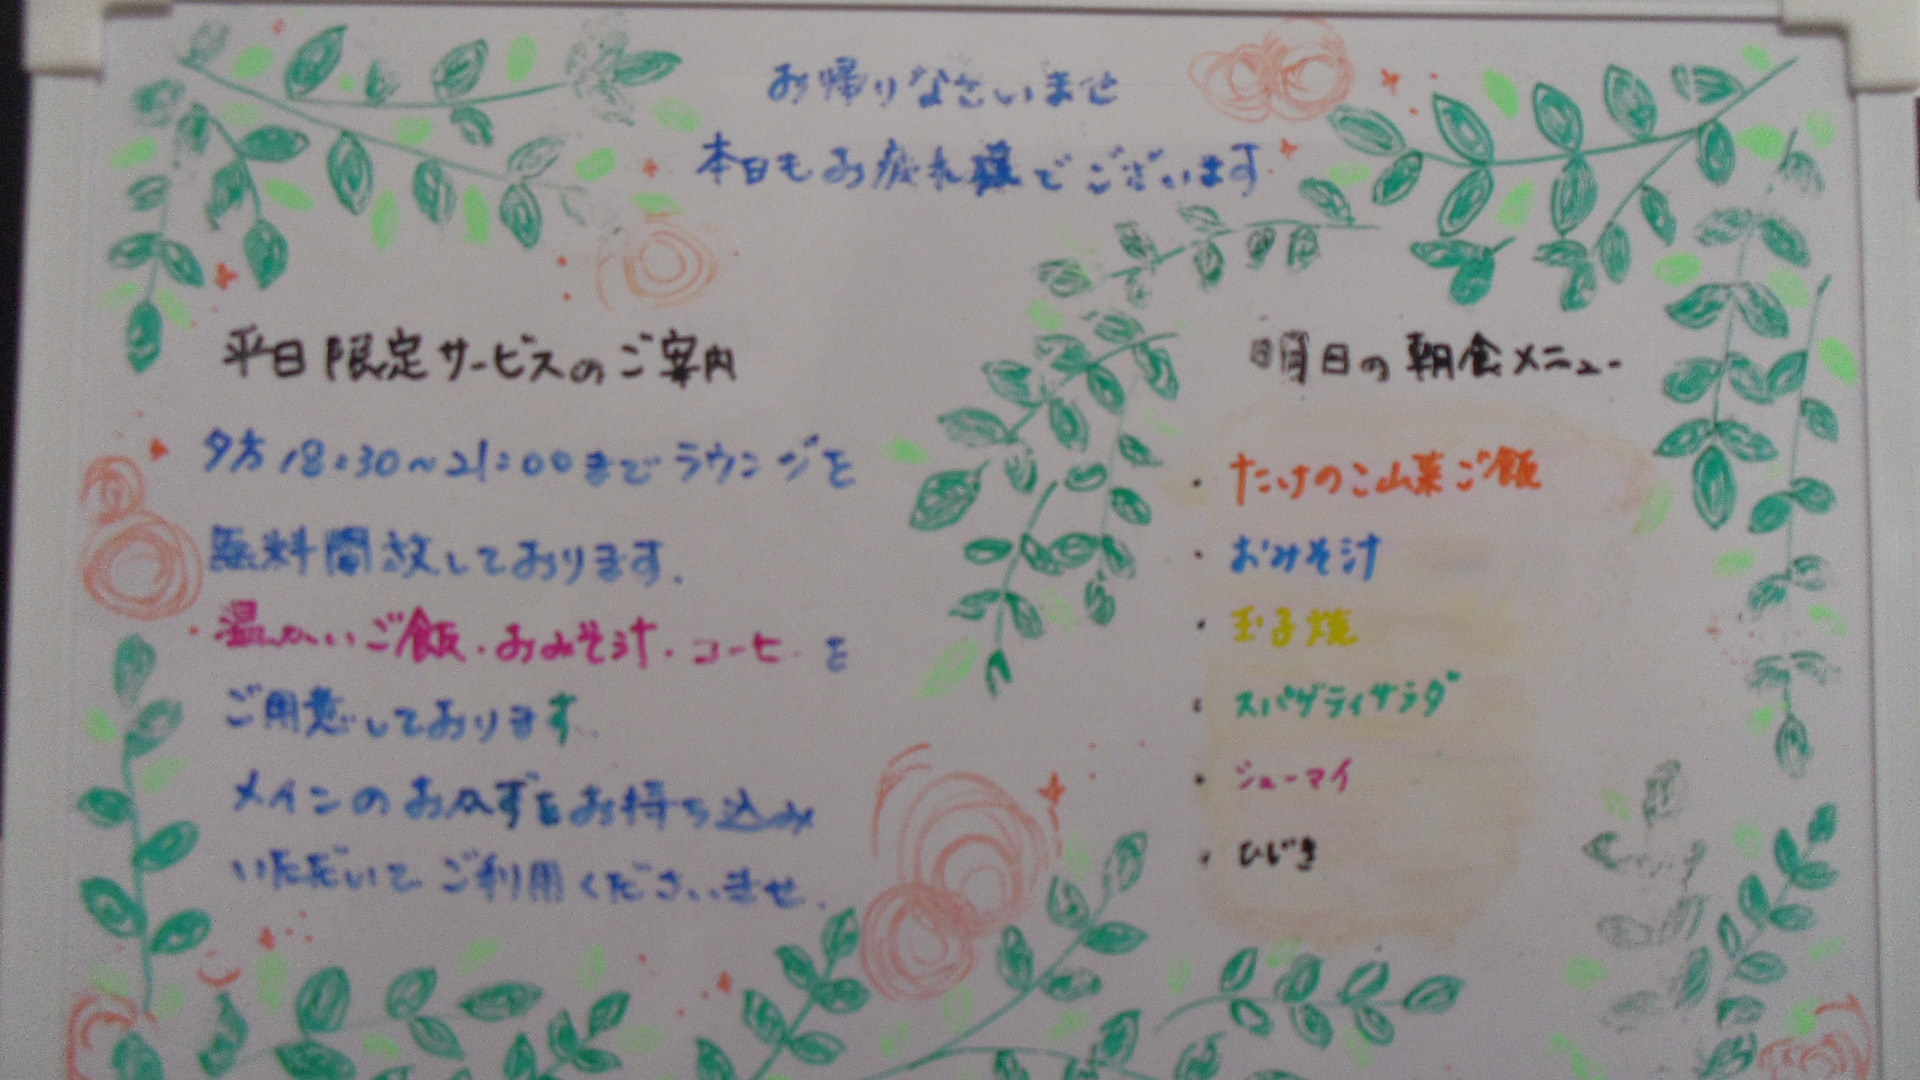 お帰りなさいませ
本日もお疲れ様でございます
平日限定サービスのご案内
夕方18:30〜21:00までラウンジを
無料開放しております.
温かいご飯・おみそ汁・コーヒーを
ご用意しております.
メインのおかずをお持ち込み
いただいてご利用くださいませ.
明日の朝食メニュー
・たけのこ山菜ご飯
・おみそ汁
・玉子焼
・スパゲティサラダ
・シューマイ
・ひじき